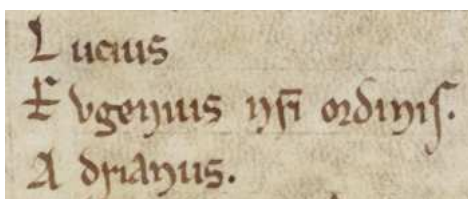 Lucius
Evgenius nr̄i ordinis.
Adrianus.